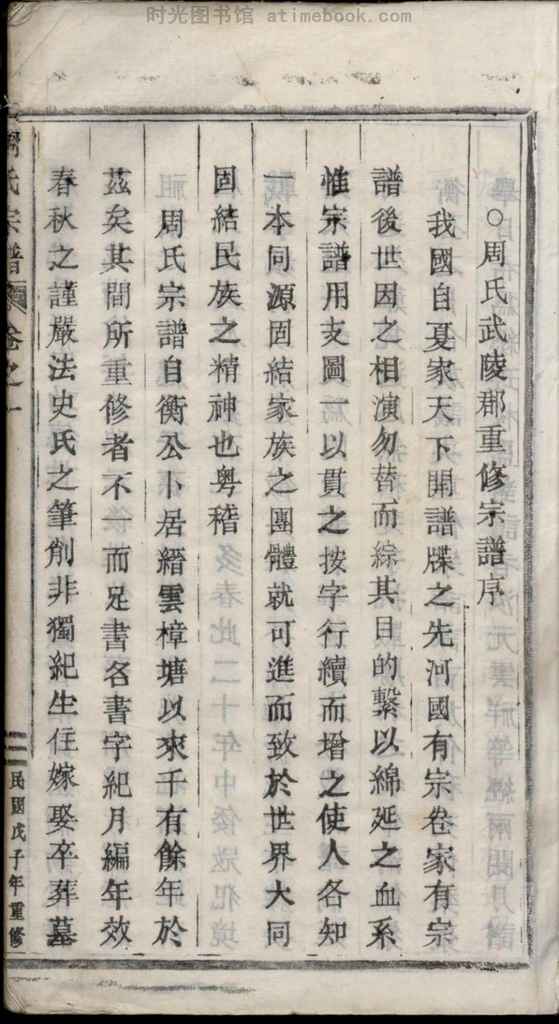 时光图书馆 atimebook.com
○周氏武陵郡重修宗譜序
我國自夏家天下開譜牒之先河國有宗卷家有宗
譜後世因之相演勿替而綜其目的繫以綿延之血系
惟宗譜用支圖一以貫之按字行續而增之使人各知
一本同源固結家族之團體就可進而致於世界大同
固結民族之精神也粵稽
周氏宗譜自衡公卜居縉雲樟塘以來千有餘年於
茲矣其間所重修者不一而足書名書字紀月編年效
春秋之謹嚴法史氏之筆削非獨紀生住嫁娶卒葬墓
周氏宗譜 卷之一
民國戊子年重修